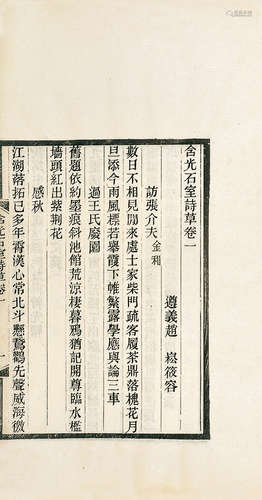 含光石室詩草卷一
遵義趙 崧筱容
訪張介夫金雅
數日不相見閒來處士家柴門疏客履茶鼎落槐花月
旦添今雨風標若舉霞下帷繁露學應與論三車
過王氏廢園
舊題依約墨痕斜池館荒涼棲暮鴉猶記開尊臨水檻
牆頭紅出紫荆花
感秋
江湖落拓已多年霄漢心常北斗懸鵞鸛先聲威海徼
含光石室詩草卷一
一